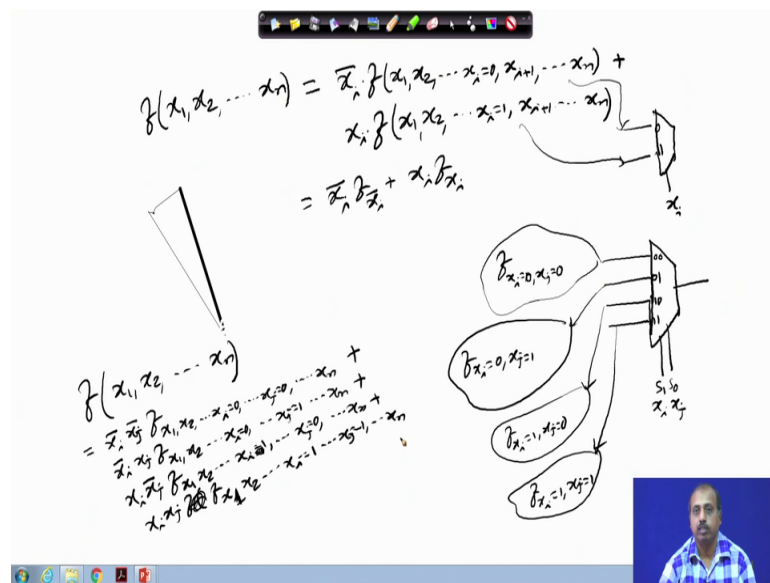 f(x₁, x₂, ... xₙ) = x̄ᵢ f(x₁, x₂, ... xᵢ=0, xᵢ₊₁, ... xₙ) +
xᵢ f(x₁, x₂, ... xᵢ=1, xᵢ₊₁ ... xₙ)
= x̄ᵢ f_x̄ᵢ + xᵢ f_xᵢ
0
1
xᵢ
f_xᵢ=0, xⱼ=0
f_xᵢ=0, xⱼ=1
f_xᵢ=1, xⱼ=0
f_xᵢ=1, xⱼ=1
00
01
10
11
S₁ S₀
xᵢ xⱼ
f(x₁, x₂, ... xₙ)
= x̄ᵢ x̄ⱼ f_x₁, x₂, ... xᵢ=0, ... xⱼ=0, ... xₙ +
x̄ᵢ xⱼ f_x₁, x₂ ... xᵢ=0, ... xⱼ=1 ... xₙ +
xᵢ x̄ⱼ f_x₁ x₂ ... xᵢ=1, ... xⱼ=0, ... xₙ +
xᵢ xⱼ f_x₁ x₂ ... xᵢ=1 ... xⱼ=1, ... xₙ